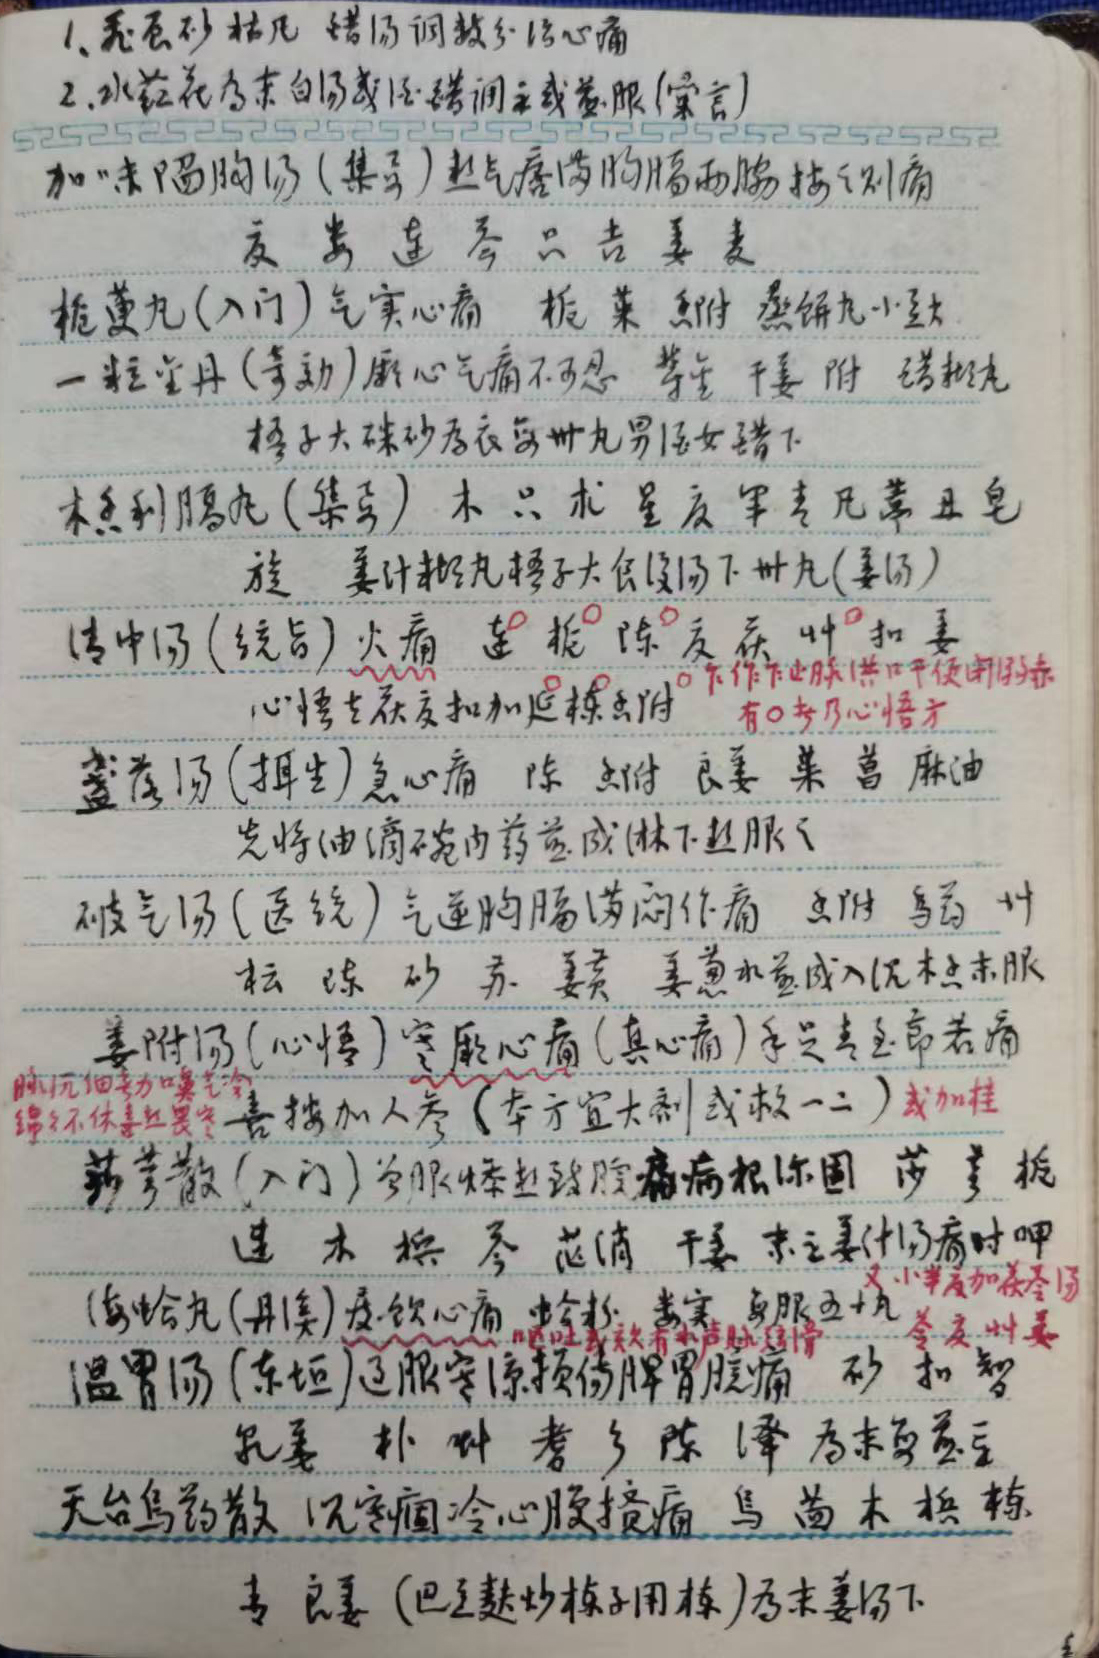 1、 砂枯凡 醋汤调数分治心痛
2、水红花为末白汤或酒醋调主或煎服
加味陷胸汤(集成)热气痞满胸膈两胁按之则痛
夏 娄 连 芩 只 吉 姜 麦
栀萸丸(入门)气实心痛 栀 茱 香附 蒸饼丸小豆大
一粒金丹(奇効)厥心气痛不可忍 郁金 干姜 附 醋糊丸
梧子大硃砂为衣每卅丸男酒女醋下
木香利膈丸(集成) 木 只 术 星 夏 军 青 凡 皂
旋 姜汁糊丸梧子大食后汤下卅丸(姜汤)
清中汤(统旨)火痛 连 栀 陈 夏 茯 艹 扣 姜
心悟去茯夏扣加延楝香附
乍作乍止脉洪口干便闭溺赤
有〇者乃心悟方
盏落汤(摄生)急心痛 陈 香附 良姜 茱 菖 麻油
先将油滴碗内药煎成淋下热服之
破气汤(医统)气逆胸膈满闷作痛 香附 乌药 艹
枟 陈 砂 苏 姜黄 姜葱水煎成入沉木香末服
姜附汤(心悟)寒厥心痛(真心痛)手足青至节若痛
脉沉细 冷
绵绵不休喜热畏寒
喜按加人参(本方宜大剂或救一二)
或加桂
莎芎散(入门)曾服燥热致脘痛病根深固 莎 芎 栀
连 木 槟 芩 芒消 干姜 末主姜汁汤痛时呷
海蛤丸(丹溪)痰饮心痛 蛤粉 娄实 每服五十丸
又小半夏加茯苓汤
苓 夏 艹 姜
呕吐或 有水声脉弦滑
温胃汤(东垣)过服寒凉损伤脾胃脘痛 砂 扣 智
乾姜 朴 艹 耆 陈 泽 为末每煎主
天台乌药散 沉寒痼冷心腹搅痛 乌 茴 木 槟 楝
青 良姜 (巴豆麸炒楝子用楝)为末姜汤下